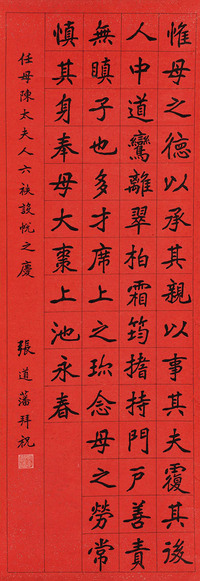 惟母之德以承其親以事其夫覆其後
人中道鸞離翠柏霜筠撐持門戶善責
無瞋子也多才席上之珍念母之勞常
慎其身奉母大棗上池永春
任母陳太夫人六秩設帨之慶
張道藩拜祝